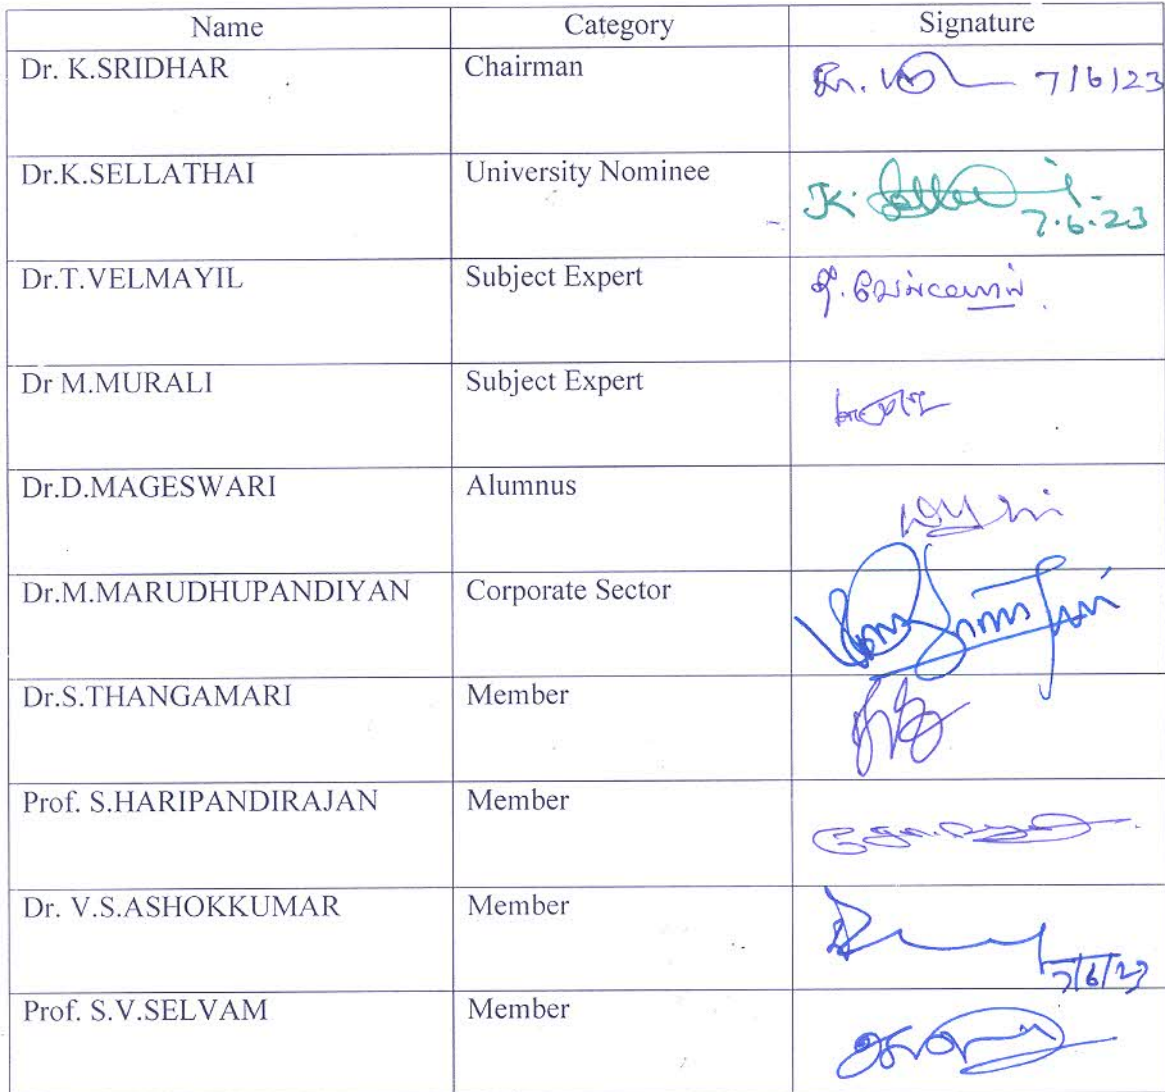 Name Category Signature
Dr. K.SRIDHAR Chairman 7/6/23
Dr.K.SELLATHAI University Nominee K. 7.6.23
Dr.T.VELMAYIL Subject Expert
Dr M.MURALI Subject Expert
Dr.D.MAGESWARI Alumnus
Dr.M.MARUDHUPANDIYAN Corporate Sector
Dr.S.THANGAMARI Member
Prof. S.HARIPANDIRAJAN Member
Dr. V.S.ASHOKKUMAR Member 7/6/23
Prof. S.V.SELVAM Member